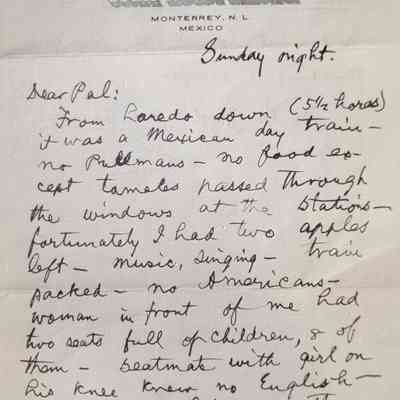 MONTERREY, N. L.
MEXICO
Sunday night.
Dear Pal:
From Laredo down (5½ horas)
it was a Mexican day train —
no Pullmans — no food ex-
cept tameles passed through
the windows at the stations —
fortunately I had two apples
left — music, singing — train
packed — no Americans —
woman in front of me had
two seats full of children, 8 of
them — seatmate with girl on
his knee knew no English —